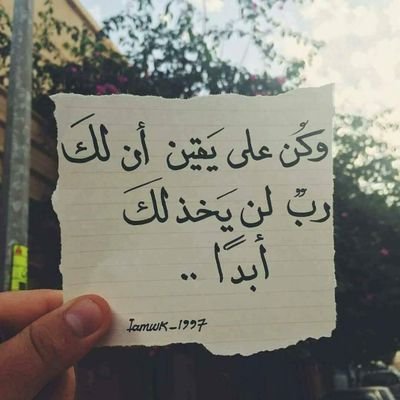 وكُن على يَقين أن لكَ
ربٌ لن يَخذلكَ
أبدًا ..
Iamwk_1997